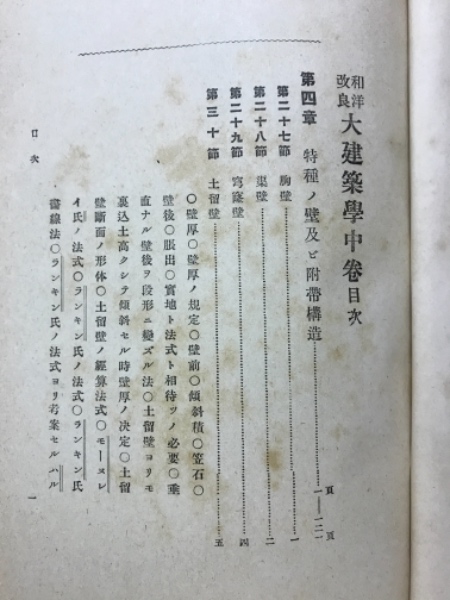 和洋改良 大建築學中卷目次
頁 頁
第四章 特種ノ壁及ビ附帶構造……一—一二一
第二十七節 胸壁……一
第二十八節 梁壁……二
第二十九節 穹窿壁……四
第三十節 土留壁……五
〇壁厚〇壁厚ノ規定〇壁前〇傾斜積〇笠石〇
壁後〇脹出〇實地ト法式ト相待ツノ必要〇垂
直ナル壁後ヲ段形ニ變ズル法〇土留壁ヨリモ
裏込土高クシテ傾斜セル時壁厚ノ決定〇土留
壁斷面ノ形体〇土留壁ノ經算法式〇モーヌレ
イ氏ノ法式〇ランキン氏ノ法式〇ランキン氏
線法〇ランキン氏ノ法式ヨリ考案セルハル
目次
一